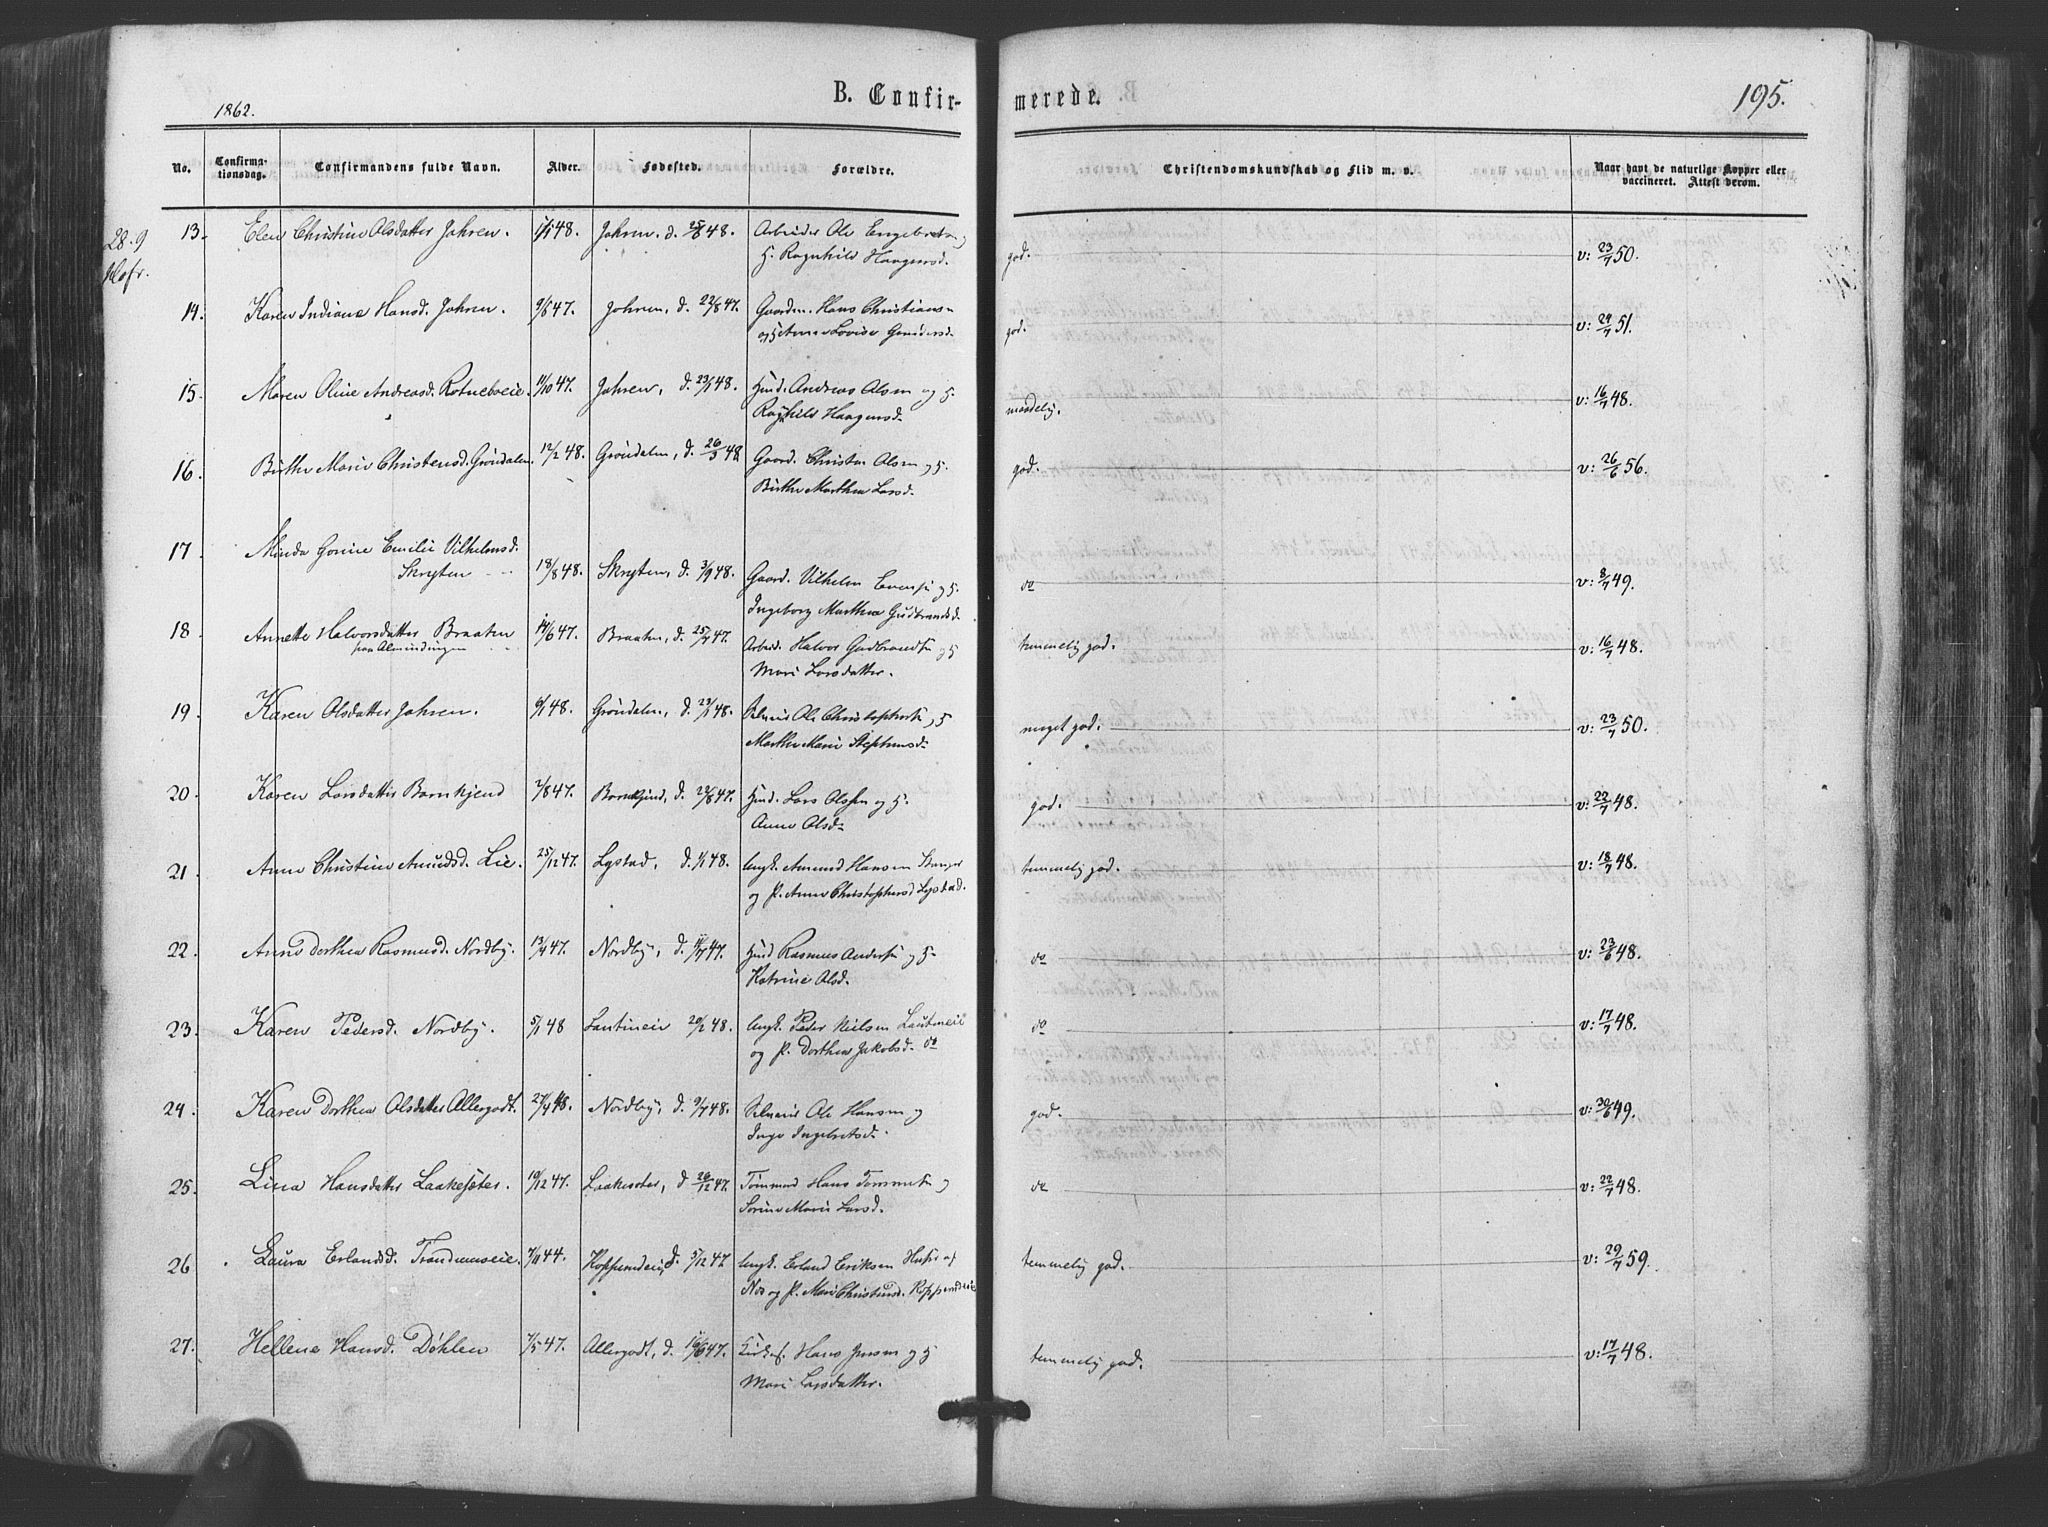 1862.
B. Confir-
merede.
195.
No. Confirma-
tionsdag. Confirmandens fulde Navn. Alder. Fødested. Forældre. Christendomskundskab og Flid m. v. Naar havt de naturlige Kopper eller
vaccineret. Attest derom.
28.9
13. Elen Christine Olsdatter Johren. 1/1 48. Johren, d. 25/6 48. Arbeider Ole Engebretsen og
H. Ragnhild Haagensd. god. v: 23/7 50.
14. Karen Indiane Hansd. Johren. 9/6 47. Johren, d. 22/8 47. Gaardm. Hans Christiansen
og H. Anne Lovise Gundersd. god. v: 29/7 51.
15. Maren Oline Andreasd. Rotneboeie. 11/10 47. Johren, d. 23/1 48. Husd. Andreas Olsen og H.
Ragnhild Haagensd. maadelig. v: 16/7 48.
16. Birthe Marie Christensd. Gröndalen. 12/2 48. Gröndalen, d. 26/3 48. Gaard. Christen Olsen og H.
Birthe Marthea Larsd. god. v: 26/6 56.
17. Minda Gorine Emilie Vilhelmsd.
Skryten 18/8 48. Skryten, d. 3/9 48. Gaard. Vilhelm Evensen og H.
Ingeborg Marthea Gudbrandsd. do v: 8/7 49.
18. Annette Halvorsdatter Braaten
paa Almindingen 14/6 47. Braaten, d. 25/7 47. Arbeid. Halvor Gudbrandsen og H
Mari Larsdatter. temmelig god. v: 16/7 48.
19. Karen Olsdatter Johren. 6/1 48. Gröndalen, d. 23/1 48. Selveier Ole Christophersen og H
Marthe Marie Stephensd. meget god. v: 23/7 50.
20. Karen Larsdatter Barnkjend 7/8 47. Barnkjend, d. 29/8 47. Husd. Lars Olssen og H.
Anne Olsd. god. v: 22/7 48.
21. Anne Christine Amundsd. Lie. 25/12 47. Lystad, d. 1/1 48. Ungk. Amund Hansen Stanger
og P. Anne Christophersd. Lystad. temmelig god. v: 18/7 48.
22. Anne Dorthea Rasmusd. Nordby. 13/4 47. Nordby, d. 11/7 47. Husd Rasmus Andersen og H.
Katrine Olsd. do v: 23/6 48.
23. Karen Pedersd. Nordby. 5/1 48 Lautineie 20/2 48. Ungk. Peder Nielsen Lautineie
og P. Dorthea Jakobsd. do do v: 17/7 48.
24. Karen Dorthea Olsdatter Allergodt. 27/4 48. Nordby, d. 9/7 48. Selveier Ole Hansen og
Inge Ingebretsd. god. v: 30/6 49.
25. Lina Hansdatter Laakesöter. 19/12 47. Laakesöter, d 26/12 47. Tømmermd Hans Tommesen og
Sorine Marie Larsd. do v: 22/7 48.
26 Laura Erlandsd. Trandumseie. 7/11 44. Koppendeie, d. 5/12 47. Ungk. Erland Eriksen
og P. Mari Christensd. Koppendeie temmelig god. v: 29/7 59.
27. Hellene Hansd. Döhlen 7/5 47. Allergodt, d. 16/6 47. Hans Jensen og H
Mari Larsdatter. temmelig god. v: 17/7 48.